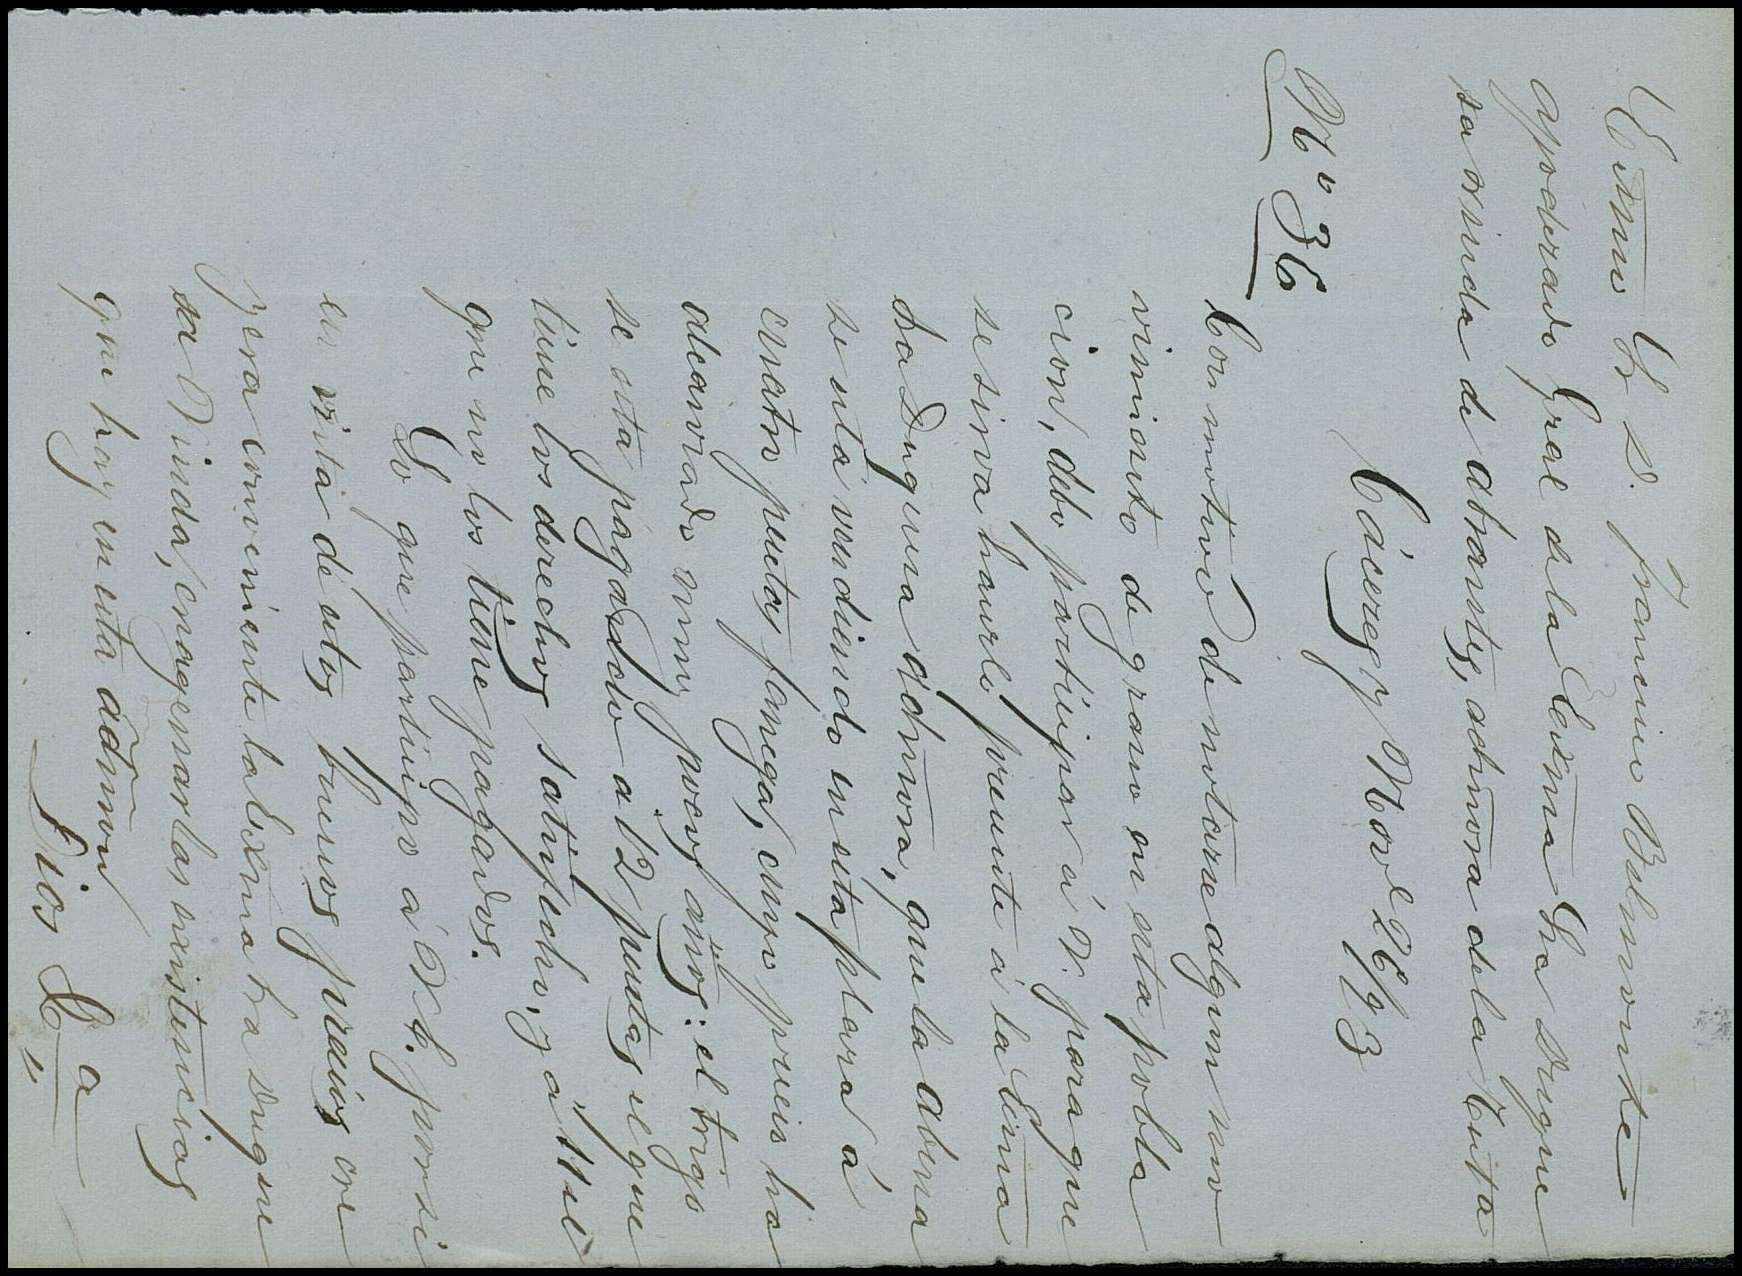 Exmo Sr D. Francisco Belmonte
apoderado Gral de la Exma Sra Duque
sa viuda de Abrantes, admora de la Testa
Cáceres y Nov.e 26/73
Nº 36
Con motivo de notarse algun mo
vimiento de grano en esta pobla
cion, debo participar á V. para que
se sirva hacerlo presente á la Exma
Sra Duquesa admora, que la abena
se está vendiendo en esta plaza á
cuatro pesetas fanega, cuyo precio ha
alcanzado muy pocos años: el trigo
se esta pagando á 12 pesetas el que
tiene los derechos satisfechos, y á 11 el
que no los tiene pagados.
Lo que participo á V.E. por si
en vista de estos buenos precios cre
yera conveniente la Exma Sra Duque
sa Viuda, enagenar las existencias
que hay en esta admon
Dios &a